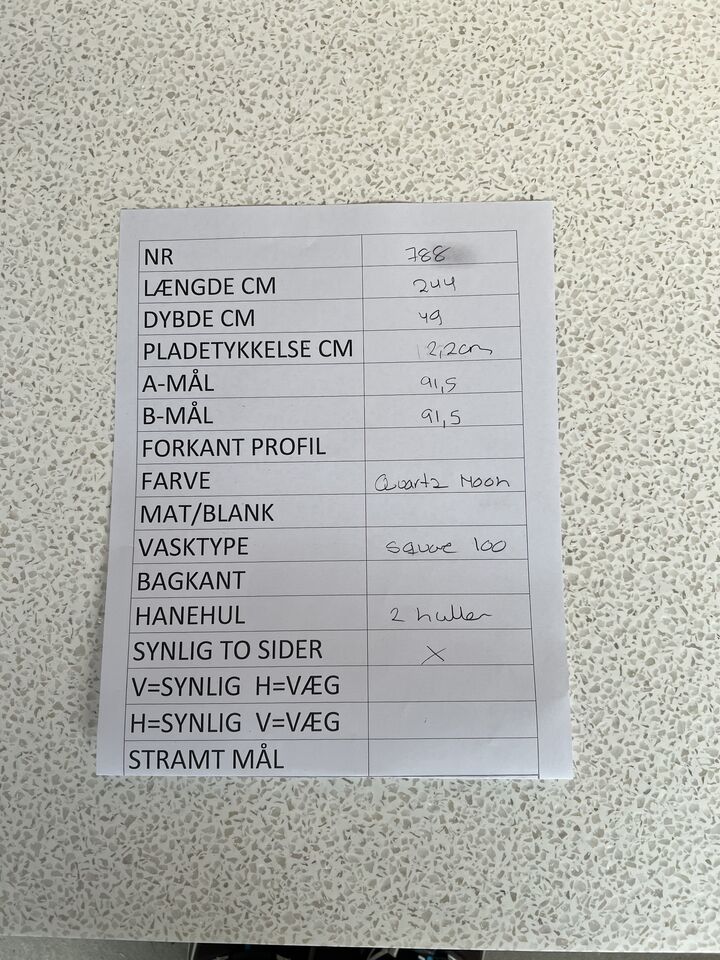 NR 788
LÆNGDE CM 244
DYBDE CM 49
PLADETYKKELSE CM 2,2cm
A-MÅL 91,5
B-MÅL 91,5
FORKANT PROFIL
FARVE Quartz Moon
MAT/BLANK
VASKTYPE Square 100
BAGKANT
HANEHUL 2 huller
SYNLIG TO SIDER X
V=SYNLIG H=VÆG
H=SYNLIG V=VÆG
STRAMT MÅL